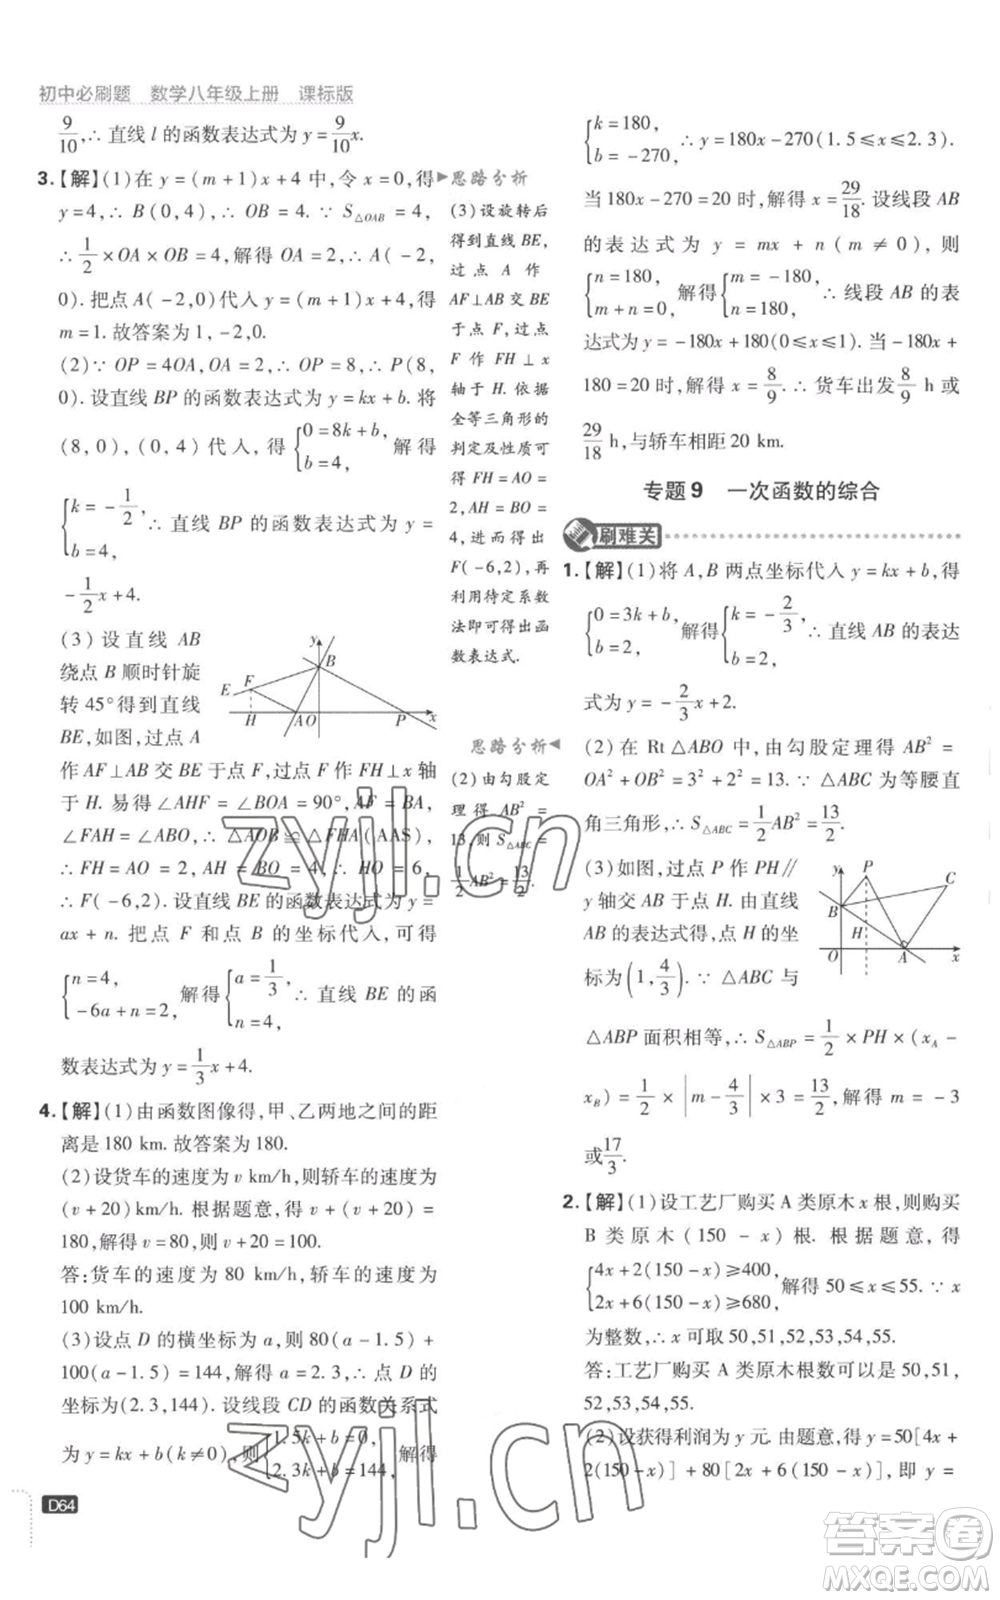 初中必刷题 数学八年级上册 课标版
9/10,∴ 直线 l 的函数表达式为 y = 9/10 x.
3.【解】(1)在 y = (m + 1)x + 4 中,令 x = 0,得
y = 4,∴ B(0,4),∴ OB = 4. ∵ S△OAB = 4,
∴ 1/2 × OA × OB = 4,解得 OA = 2,∴ A(-2,
0). 把点 A(-2,0)代入 y = (m + 1)x + 4,得
m = 1. 故答案为 1,-2,0.
(2)∵ OP = 4OA,OA = 2,∴ OP = 8,∴ P(8,
0). 设直线 BP 的函数表达式为 y = kx + b. 将
(8,0),(0,4)代入,得 {0 = 8k + b, b = 4, 解得
{k = -1/2, b = 4, ∴ 直线 BP 的函数表达式为 y =
-1/2 x + 4.
(3)设直线 AB
绕点 B 顺时针旋
转 45°得到直线
BE,如图,过点 A
y
B
E
F
H
A
O
P
x
作 AF⊥AB 交 BE 于点 F,过点 F 作 FH⊥x 轴
于 H. 易得∠AHF = ∠BOA = 90°,AF = BA,
∠FAH = ∠ABO,∴ △AOB ≌ △FHA(AAS),
∴ FH = AO = 2,AH = BO = 4,∴ HO = 6,
∴ F(-6,2). 设直线 BE 的函数表达式为 y =
ax + n. 把点 F 和点 B 的坐标代入,可得
{n = 4, -6a + n = 2, 解得 {a = 1/3, n = 4, ∴ 直线 BE 的函
数表达式为 y = 1/3 x + 4.
4.【解】(1)由函数图像得,甲、乙两地之间的距
离是 180 km. 故答案为 180.
(2)设货车的速度为 v km/h,则轿车的速度为
(v + 20) km/h. 根据题意,得 v + (v + 20) =
180,解得 v = 80,则 v + 20 = 100.
答:货车的速度为 80 km/h,轿车的速度为
100 km/h.
(3)设点 D 的横坐标为 a,则 80(a - 1.5) +
100(a - 1.5) = 144,解得 a = 2.3,∴ 点 D 的
(2.3,144). 设线段 CD 的函数关系式
为 y = kx + b(k ≠ 0),则 {1.5k + b = 0, 2.3k + b = 144, 解得
D64
思路分析
(3)设旋转后
得到直线 BE,
过 点 A 作
AF⊥AB 交 BE
于点 F,过点
F 作 FH⊥x
轴于 H. 依据
全等三角形的
判定及性质可
得 FH = AO =
2,AH = BO =
4,进而得出
F(-6,2),再
利用待定系数
法即可得出函
数表达式.
思路分析
(2)由勾股定
理得 AB² =
13,则 S△ABC =
1/2 AB² = 13/2.
{k = 180, b = -270, ∴ y = 180x - 270(1.5≤x≤2.3).
当 180x - 270 = 20 时,解得 x = 29/18. 设线段 AB
的表达式为 y = mx + n(m ≠ 0),则
{n = 180, m + n = 0, 解得 {m = -180, n = 180, ∴ 线段 AB 的表
达式为 y = -180x + 180(0≤x≤1). 当 -180x +
180 = 20 时,解得 x = 8/9. ∴ 货车出发 8/9 h 或
29/18 h,与轿车相距 20 km.
专题 9 一次函数的综合
刷难关
1.【解】(1)将 A,B 两点坐标代入 y = kx + b,得
{0 = 3k + b, b = 2, 解得 {k = -2/3, b = 2, ∴ 直线 AB 的表达
式为 y = -2/3 x + 2.
(2)在 Rt △ABO 中,由勾股定理得 AB² =
OA² + OB² = 3² + 2² = 13. ∵ △ABC 为等腰直
角三角形,∴ S△ABC = 1/2 AB² = 13/2.
(3)如图,过点 P 作 PH∥
y 轴交 AB 于点 H. 由直线
AB 的表达式得,点 H 的坐
标为 (1, 4/3). ∵ △ABC 与
y
P
C
B
H
O
A
x
△ABP 面积相等,∴ S△ABP = 1/2 × PH × (xA -
xB) = 1/2 × |m - 4/3| × 3 = 13/2,解得 m = -3
或 17/3.
2.【解】(1)设工艺厂购买 A 类原木 x 根,则购买
B 类原木 (150 - x) 根. 根据题意,得
{4x + 2(150 - x)≥400, 2x + 6(150 - x)≥680, 解得 50≤x≤55. ∵ x
为整数,∴ x 可取 50,51,52,53,54,55.
答:工艺厂购买 A 类原木根数可以是 50,51,
52,53,54,55.
(2)设获得利润为 y 元. 由题意,得 y = 50[4x +
2(150 - x)] + 80[2x + 6(150 - x)],即 y =
zyjl.cn
zyjl.cn
答案圈
MXQE.COM